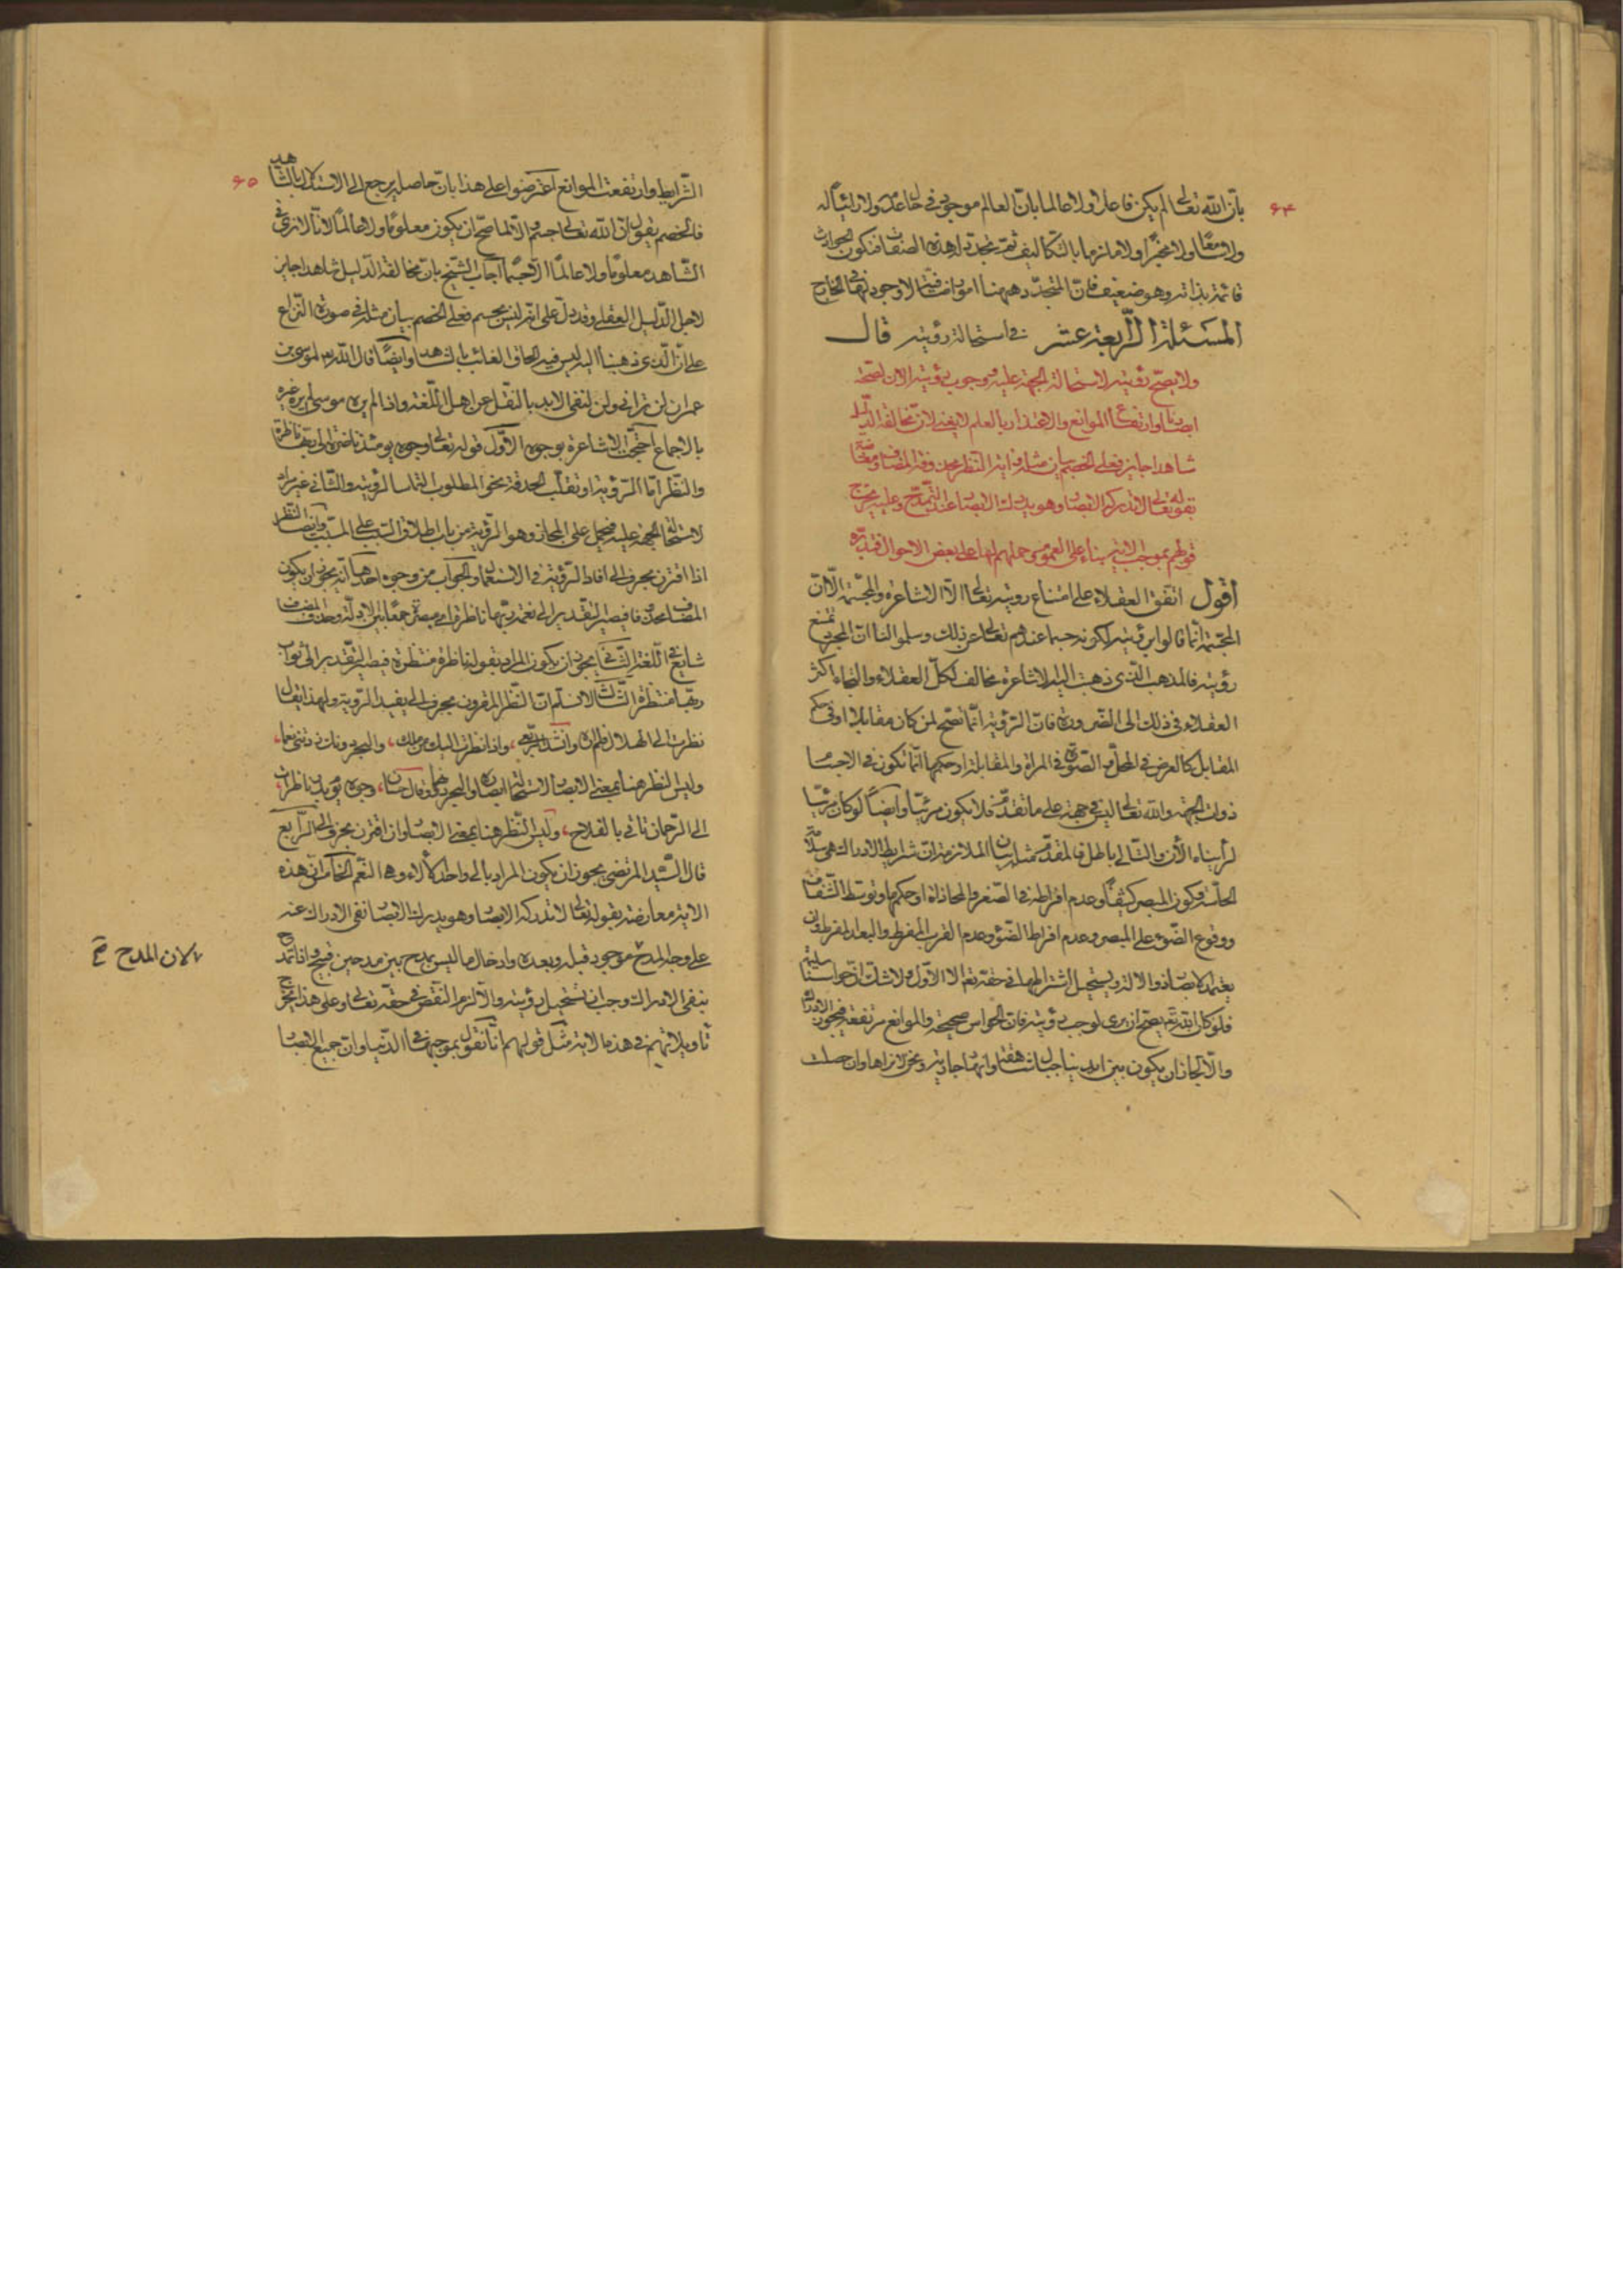 ۶۴
بأن الله تعالى لم يكن فاعلا ولا عالما بان العالم موجود في الحال
ولا سامعا ولا مخبرا ولا ملزما بالتكاليف ثم تجدد له هذه الصفات فتكون الحوادث
قائمة بذاته وهو ضعيف فان المتجدد ههنا امور اضافية لا وجود لها في الخارج
المسئلة الرابعة عشر في استحالة رؤيته قال
ولا يصح رؤيته لاستحالة الجهة عليه ولوجوب رؤيته الان لصحة
ابصارنا وارتفاع الموانع والاعتذار بالعلم لا يغني لان مخالفة الدليل
شاهدا جايز فعلى الخصم بيان مثله واية النظر محذوفة المضاف ومعارضة
بقوله تعالى لا تدركه الابصار وهو يدرك الابصار عند التمدح وعليه يخرج
قولهم بموجب الاية بناء على العموم وحملهم لها على بعض الاحوال فتدبره
أقول اتفق العقلاء على امتناع رويته تعالى الا الاشاعرة والمجسمة الا ان
المجسمة انما قالوا برؤيته لكونه جسما عندهم تعالى عن ذلك وسلموا لنا ان المجرد تمتنع
رؤيته فالمذهب الذي ذهب اليه الاشاعرة مخالف لكل العقلاء والتجاء اكثر
العقلاء في ذلك الى الضرورة فان الرؤية انما تصح لمن كان مقابلا او في حكم
المقابل كالعرض في المحل والصورة في المرآة والمقابلة او حكمها انما تكون في الاجسام
ذوات الجهة والله تعالى ليس في جهة على ما تقدم فلا يكون مرئيا وايضا لو كان مرئيا
لرأيناه الأن والتالي باطل فالمقدم مثله بيان الملازمة ان شرايط الادراك هي سلامة
الحاسة وكون المبصر كثيفا وعدم افراطه في الصغر والمحاذاة او حكمها وتوسط الشفاف
ووقوع الضوء على المبصر وعدم افراط الضوء وعدم القرب المفرط والبعد المفرط وان
يعتمد الابصار ذو الالة ويستحيل اشتراطها في حقه تعالى الا الأول ولا شك ان حواسنا سليمة
فلو كان الله تعالى يصح ان يرى لوجب رؤيته فان الحواس صحيحة والموانع مرتفعة فيجب الادراك
والا لجاز ان يكون بين ايدينا جبال شاهقة وانهار جارية ونحن لا نراها وان حصلت
۶۵
الشرايط وارتفعت الموانع اعترضوا على هذا بان حاصله يرجع الى الاستدلال بالشاهد
فالخصم يقول ان الله تعالى جسم والا لما صح ان يكون معلوما ولا عالما لانا لا نرى في
الشاهد معلوما ولا عالما الا جسما اجاب الشيخ بان مخالفة الدليل شاهدا جايز
لاجل الدليل العقلي وقد دل على انه ليس بجسم فعلى الخصم بيان مثله في صورة النزاع
على ان الذي ذهبنا اليه ليس فيه الحاق الغائب بالشاهد وايضا قال الله تعالى لموسى بن
عمران لن تراني ولن لنفي الابد بالنقل عن اهل اللغة واذا لم يره موسى لم يره غيره
بالاجماع احتجت الاشاعرة بوجوه الأول قوله تعالى وجوه يومئذ ناضرة الى ربها ناظرة
والنظر اما الرؤية او تقلب الحدقة نحو المطلوب التماسا لرؤيته والثاني غير مراد
لاستحالة الجهة عليه فيحمل على المجاز وهو الرؤية من باب اطلاق السبب على المسبب وايضا النظر
اذا اقترن بحرف الى افاد الرؤية في الاستعمال والجواب من وجوه احدها انه يجوز ان يكون
المضاف محذوفا فيصير التقدير الى نعمة ربها ناظرة جمعا بين الادلة وحذف المضاف
شايع في اللغة الثاني يجوز ان يكون المراد بقوله ناظرة منتظرة فيصير التقدير الى ثواب
ربها منتظرة الثالث لا نسلم ان النظر المقرون بحرف الى يفيد الرؤية ولهذا يقال
نظرت الى الهلال فلم اره وانشد واذا نظرت اليك من ملك، والبحر دونك زدتني نعما،
وليس النظر هنا بمعنى الابصار لاستحالة ابصاره والبحر دونهما وقال حسان، وجوه يوم بدر ناظرات
الى الرحمان تاتي بالفلاح، وليس النظر هنا بمعنى الابصار وان اقترن بحرف الى الرابع
قال السيد المرتضى يجوز ان يكون المراد بالى واحد كالآلاء وهي النعم الخامس ان هذه
الاية معارضة بقوله تعالى لا تدركه الابصار وهو يدرك الابصار نفى الادراك عنه
على وجه المدح موجود قبله وبعده وادخال ما ليس بمدح بين مدحين قبيح واذا تمدح
بنفي الادراك وجب ان تستحيل رؤيته والا لزم النقص في حقه تعالى وعلى هذا يخرج
تأويلاتهم في هذه الاية مثل قولهم انا نقول بموجبها في الدنيا وان جميع الابصار
لان المدح صح